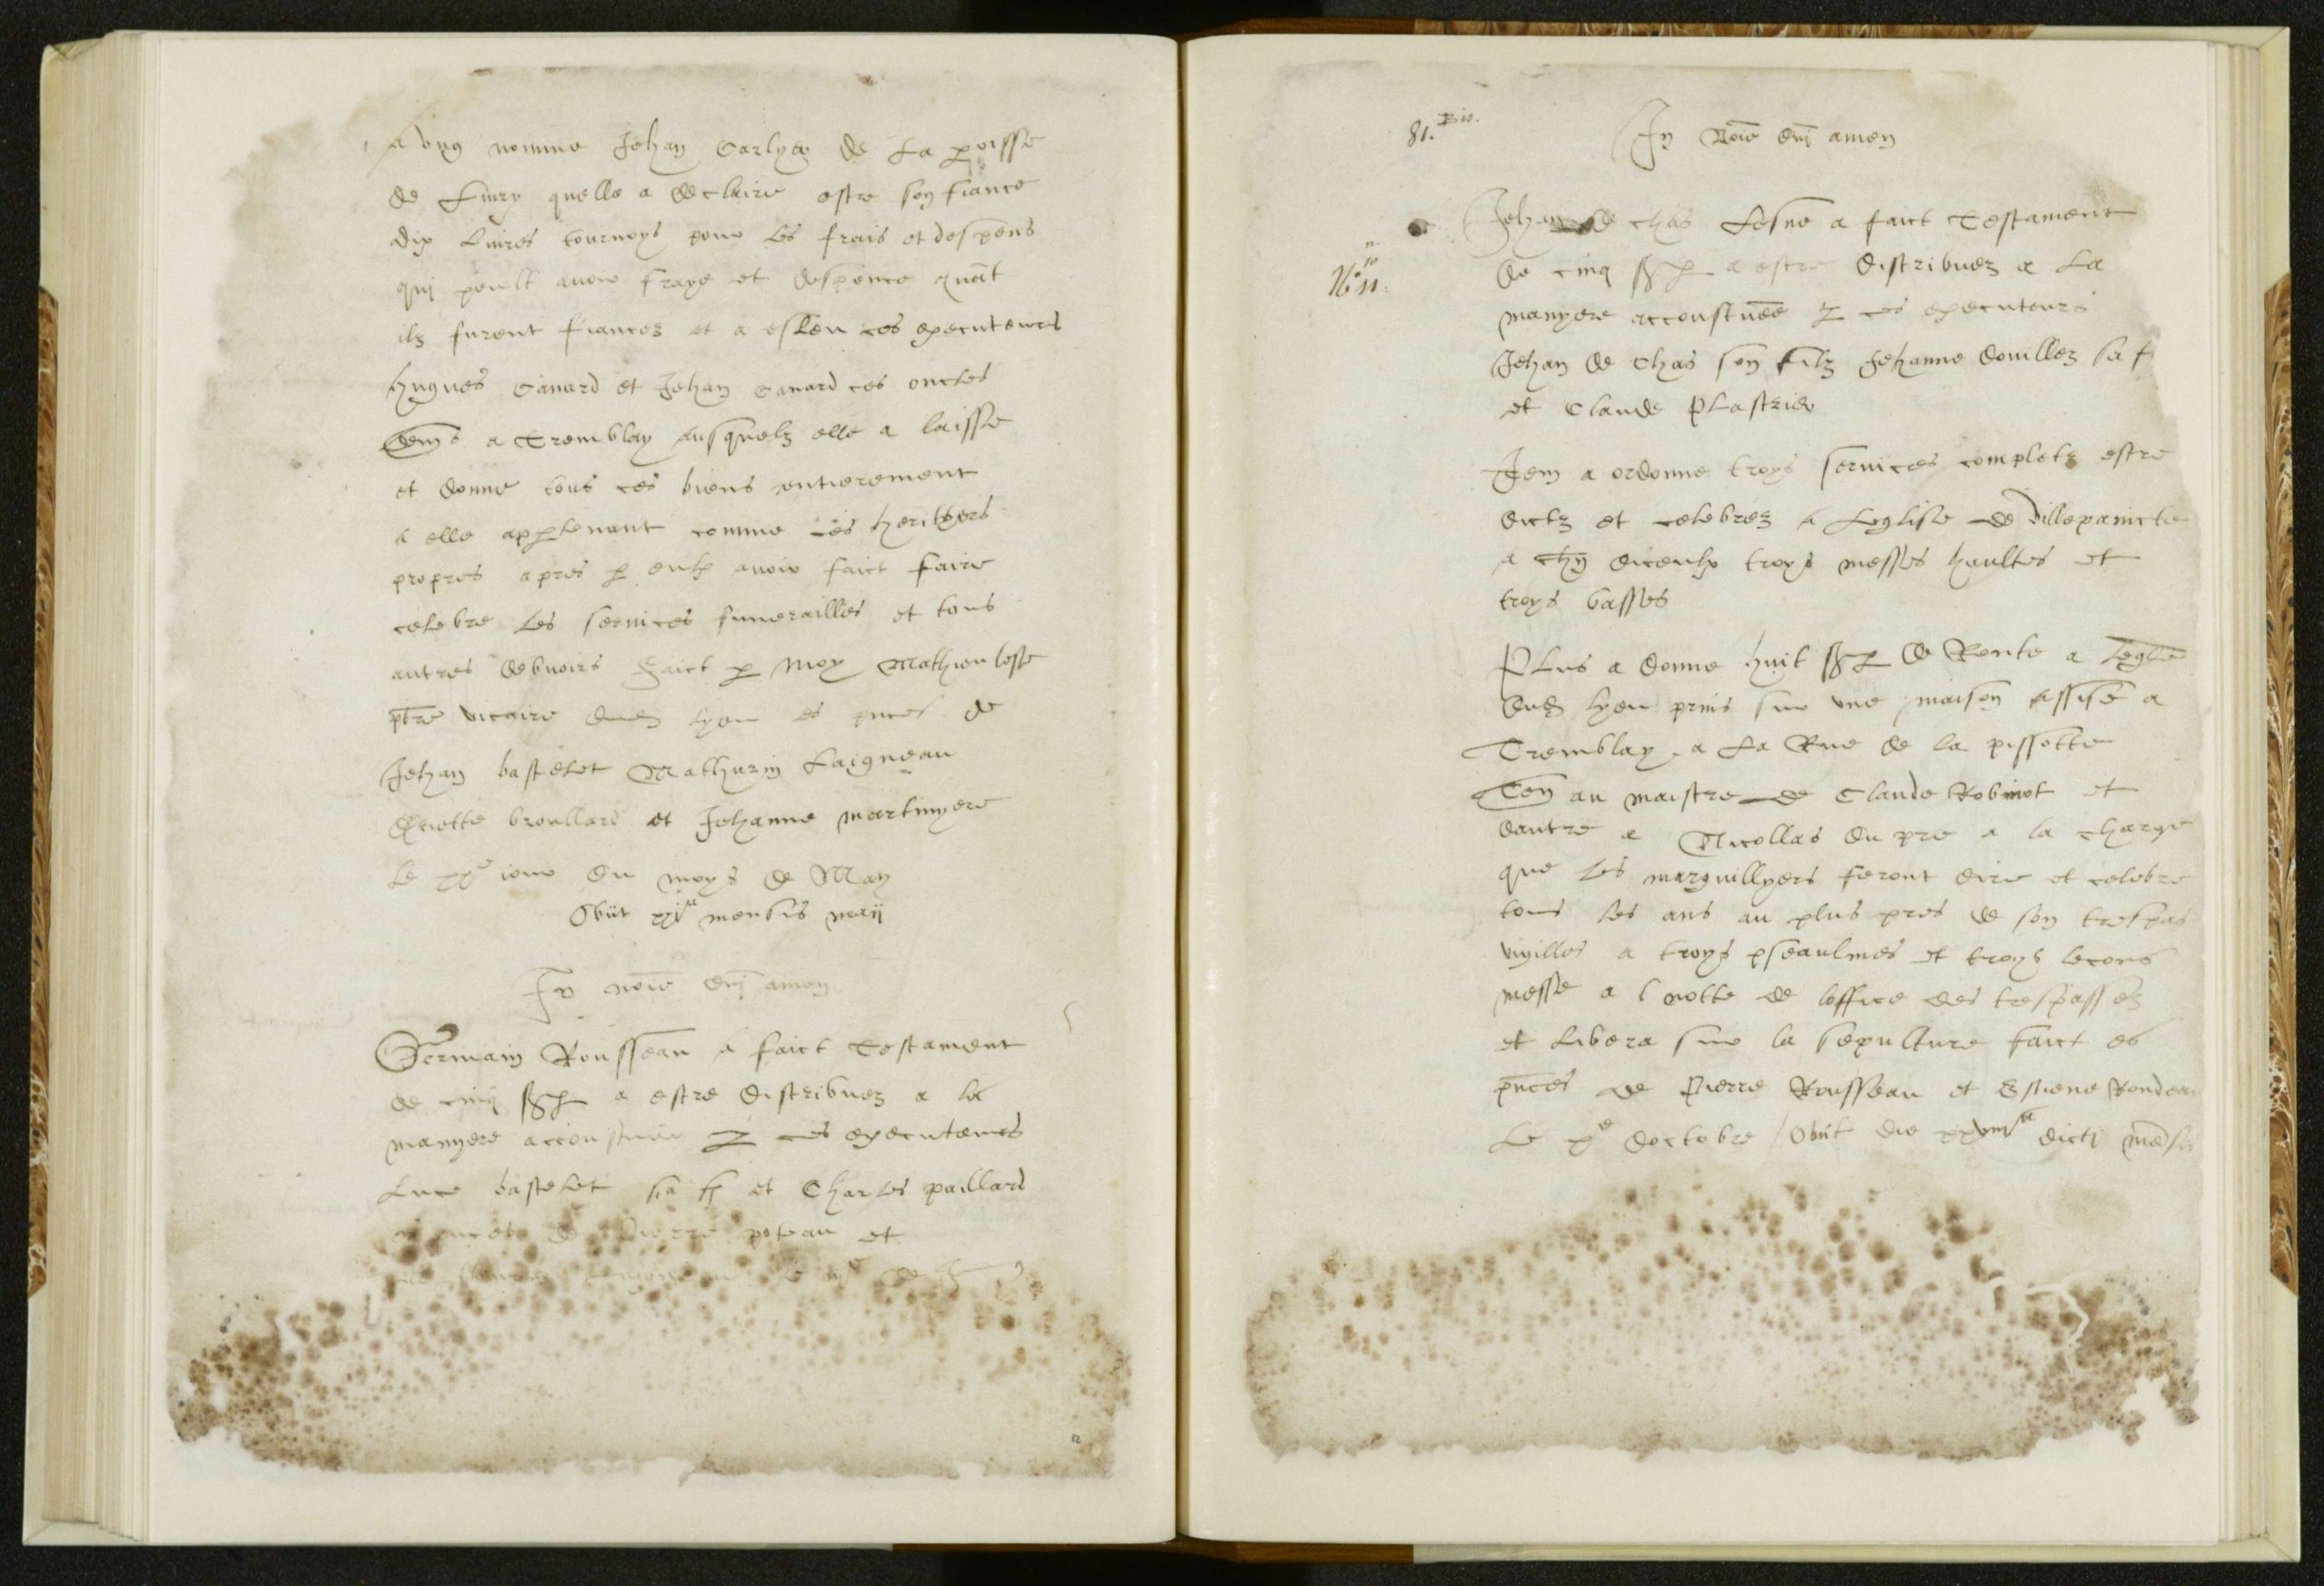 A ung nomme Jehan Carlyer de La poisse
de Livry quelle a declaire estre son fiance
dix livres tournoys pour les frais et despens
qui peult avoir fraye et despence quāt
ilz furent fiancez et a esleu ces executeurs
hugues Canard et Jehan Canard ces oncles
dems a Tremblay ausquelz elle a laisse
et donne tous ces biens entierement
a elle apptenant comme ces heritiers
propres apres p eulx avoir faict faire
celebre les services funerailles et tous
autres debvoirs faict p moy Mathieu
pbre vicaire dud lyeu es pnces de
Jehan bastelet Mathurin Laigneau
broullard et Jehanne martinyere
Le xxe jour du moys de May
Obiit xxia mensis maii
In noie dni amen
Germain Rousseau a faict Testament
de cinq s p a estre distribuez a la
manyere accoustumee p ces executeurs
Luce bastelet sa f et Charles paillard
pnces de Pierre poteau et
81. Bis.
In Noie dni amen
Jehan de Chas Lesne a faict Testament
de cinq s p a estre distribuez a La
manyere accoustuēe p ces executeurs
N. 11.
Jehan de Chas son filz Jehanne douillez sa f
et Claude Plastrier
Jtem a ordonne troys services complets estre
dictz et celebrez a Leglise de Villepaincte
a chn diceulx troys messes haultes et
troys basses
Plus a donne huit s p de Rente a Leglise
dud lyeu prins sur une maison assise a
Tremblay a La Rue de la pissotte
Ten au maistre de Claude Robinot et
dautre a Nicollas du pre a la charge
que les marguillyers feront dire et celebre
tous les ans au plus pres de son trespas
vigilles a troys pseaulmes et troys lecons
messe a l notte de loffice des trespassez
et Libera sur la sepulture faict es
pnces de Pierre Rousseau et Estiene Rondeau
Le xe doctobre / Obiit die xxviiia dicti mēsis
12